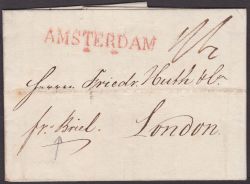 AMSTERDAM
Herrn Friedr. Huth & Co.
fr. Briel. London.